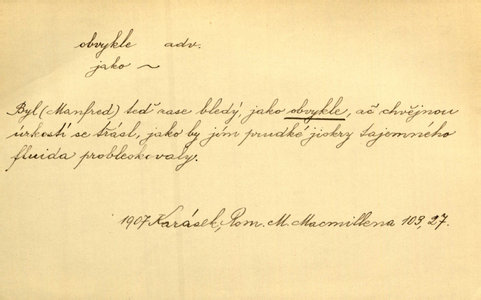 obvykle adv.
jako ~
Byl (Manfred) teď zase bledý, jako obvykle, ač chvějnou
úzkostí se třásl, jako by jím prudké jiskry tajemného
fluida probleskovaly.
1907 Karásek, Rom. M. Macmillena 103, 27.